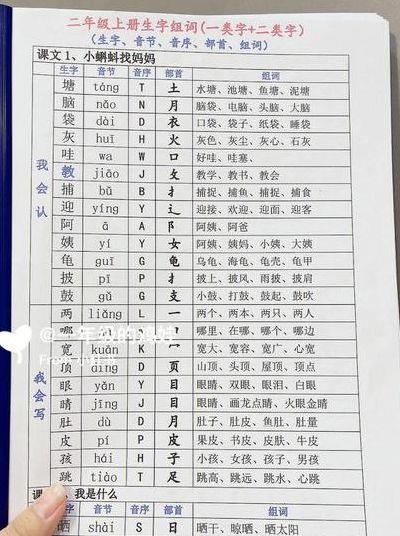 二年级上册生字组词(一类字+二类字)
(生字、音节、音序、部首、组词)
课文 1、小蝌蚪找妈妈
生字 音节 音序 部首 组词
我会认
塘 táng T 土 水塘、池塘、鱼塘、泥塘
脑 nǎo N 月 脑袋、电脑、头脑、大脑
袋 dài D 衣 口袋、袋子、纸袋、睡袋
灰 huī H 火 灰色、灰尘、灰心、石灰
哇 wa W 口 好哇、哇塞、
教 jiāo J 攵 教学、教书、教会
捕 bǔ B 扌 捕捉、捕鱼、捕捉、捕食
迎 yíng Y 辶 迎接、欢迎、迎面、迎客
阿 ā A 阝 阿姨、阿爸
姨 yí Y 女 阿姨、姨妈、小姨、大姨
龟 guī G 龟 乌龟、海龟、龟壳、龟甲
披 pī P 扌 披上、披风、雨披、披肩
鼓 gǔ G 支 小鼓、打鼓、鼓起、鼓吹
我会写
两 liǎng L 一 两个、两本、两只、两人
哪 哪里、在哪、哪个、哪边
宽 kuān K 宽大、宽容、宽广、心宽
顶 dǐng D 页 山顶、头顶、屋顶、顶点
眼 yǎn Y 目 眼睛、双眼、眼泪、白眼
睛 jīng J 目 眼睛、画龙点睛、火眼金睛
肚 dù D 月 肚子、肚皮、鱼肚、肚量
皮 pí P 皮 果皮、书皮、皮肤、牛皮
孩 hái H 子 小孩、女孩、孩子、男孩
跳 tiào T 足 跳高、跳远、跳水、心跳
课 、我是什么
生字 音节 音序 部首 组词
晒 shài S 日 晒干、晾晒、晒太阳